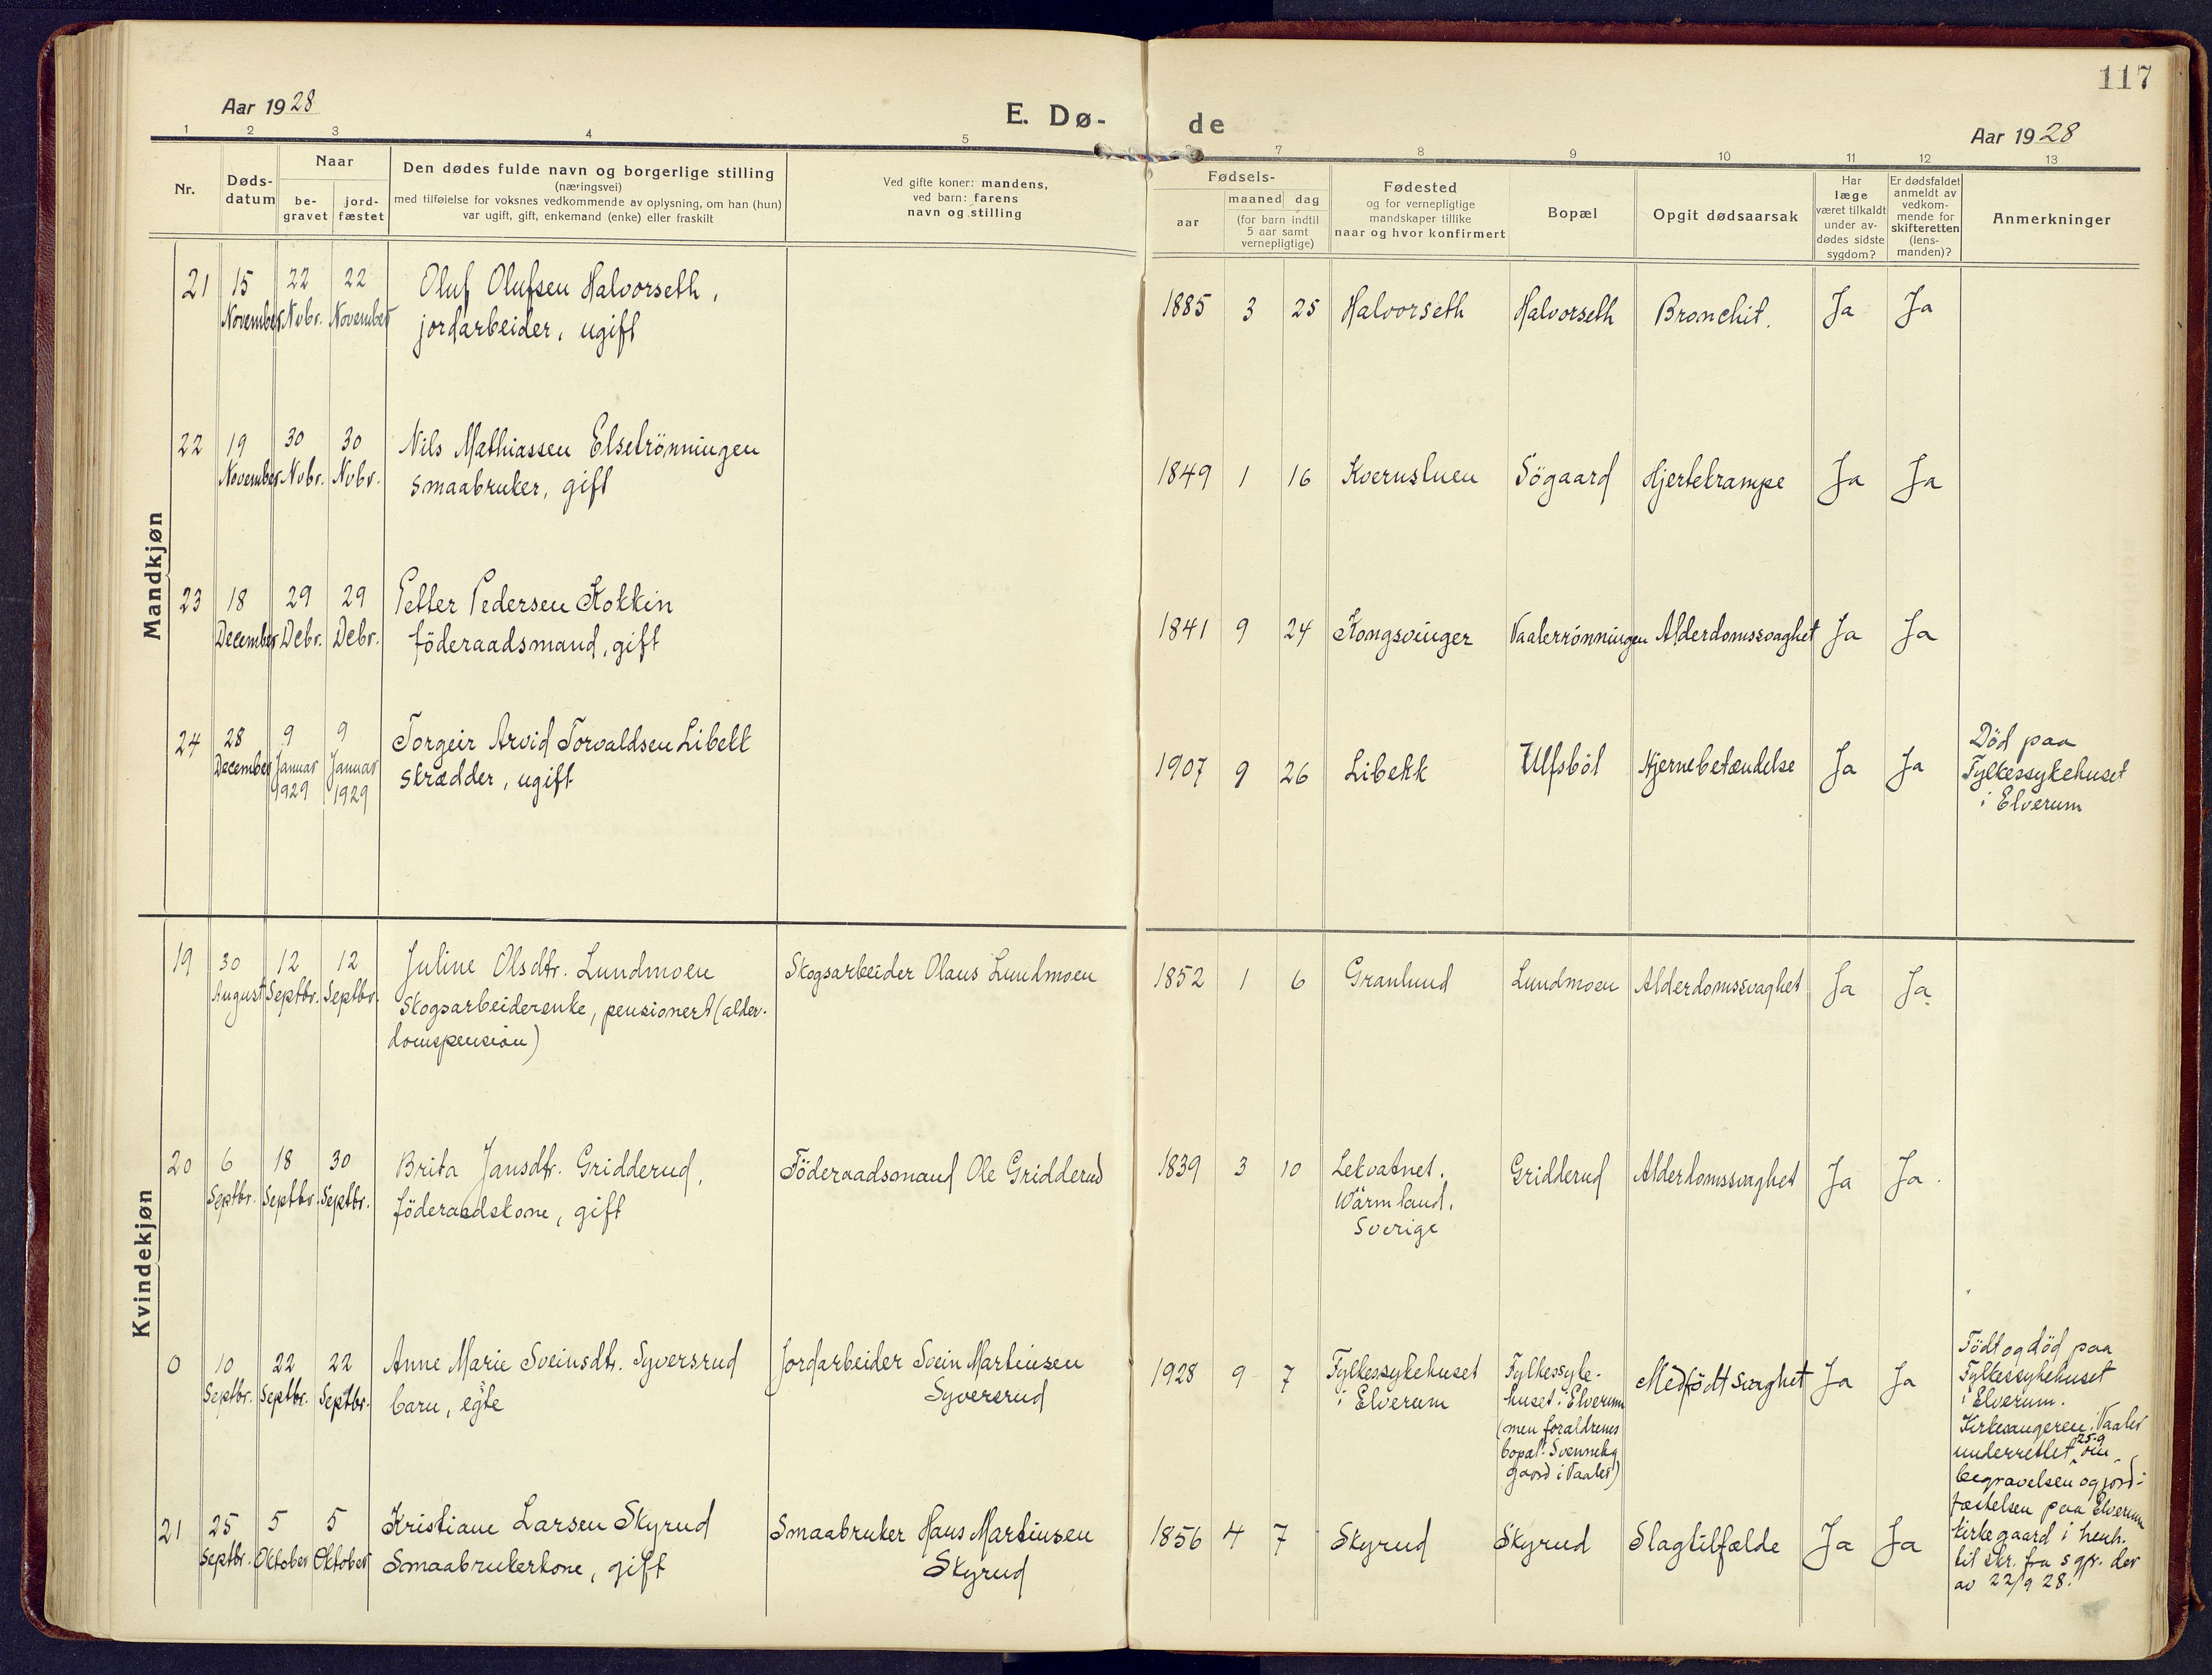 117
Aar 1928
E. Dø-
de
Aar 1928
1 2 3 4 5 7 8 9 10 11 12 13
Nr.
Døds-
datum
Naar
be-
gravet
jord-
fæstet
Den dødes fulde navn og borgerlige stilling
(næringsvei)
med tilføielse for voksnes vedkommende av oplysning, om han (hun)
var ugift, gift, enkemand (enke) eller fraskilt
Ved gifte koner: mandens,
ved barn: farens
navn og stilling
Fødsels-
aar
maaned dag
(for barn indtil
5 aar samt
vernepligtige)
Fødested
og for vernepligtige
mandskaper tillike
naar og hvor konfirmert
Bopæl
Opgit dødsaarsak
Har
læge
været tilkaldt
under av-
dødes sidste
sygdom?
Er dødsfaldet
anmeldt av
vedkom-
mende for
skifteretten
(lens-
manden)?
Anmerkninger
Mandkjøn
21 15 22 22 Oluf Olufsen Halvorseth,
November Nvbr. November jordarbeider, ugift
1885 3 25 Halvorseth Halvorseth Bronchit. Ja Ja
22 19 30 30 Nils Mathiassen Elsetrönningen
November Nvbr. Nvbr. smaabruker, gift
1849 1 16 Kvernstuen Sögaard Hjertekrampe Ja Ja
23 18 29 29 Petter Pedersen Kokkin
December Debr. Debr. föderaadsmand, gift
1841 9 24 Kongsvinger Vaalerrönningen Alderdomssvaghet Ja Ja
24 28 9 9 Torgeir Arvid Torvaldsen Libekk
December Januar Januar skrædder, ugift
1929 1929
1907 9 26 Libekk Ulfsböl Hjernebetændelse Ja Ja
Död paa
Fylkessykehuset
i Elverum
Kvindekjøn
19 30 12 12 Juline Olsdtr. Lundmoen Skogsarbeider Olaus Lundmoen
August Septbr. Septbr. Skogsarbeiderenke, pensionert (alder-
domspension)
1852 1 6 Granlund Lundmoen Alderdomssvaghet Ja Ja
20 6 18 30 Brita Jansdtr. Gridderud, Föderaadsmand Ole Gridderud
Septbr. Septbr. Septbr. föderaadskone, gift
1839 3 10 Lekvatnet. Gridderud Alderdomssvaghet Ja Ja.
Wärmland.
Sverige
0 10 22 22 Anne Marie Sveinsdtr. Syversrud Jordarbeider Svein Martinsen
Septbr. Septbr. Septbr. barn, egte Syversrud
1928 9 7 Fylkessykehuset Fylkessyke- Medfödt svaghet Ja Ja
i Elverum huset i Elverum
(men forældrenes
bopæl:
gaard i Vaaler)
Födt og död paa
Fylkessykehuset
i Elverum.
Kirkesangeren i Vaaler
underrettet 25.9 om
begravelsen og jord-
fæstelsen paa Elverum
kirkegaard i henh.
til skr. fra sgpr. der
av 22/9 28.
21 25 5 5 Kristiane Larsen Skyrud Smaabruker Hans Martinsen
Septbr. Oktober Oktober Smaabrukerkone, gift Skyrud
1856 4 7 Skyrud Skyrud Slagtilfælde Ja Ja